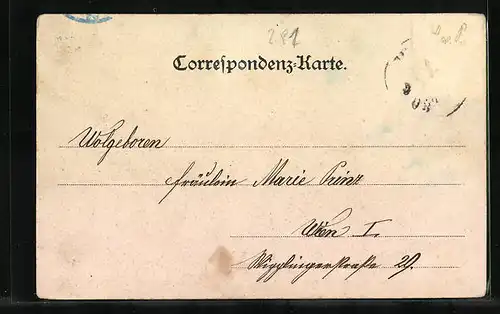 281
Correspondenz-Karte.
Wolgeboren
Fräulein Marie Prinz
Wien I.
Wipplingerstraße 29.